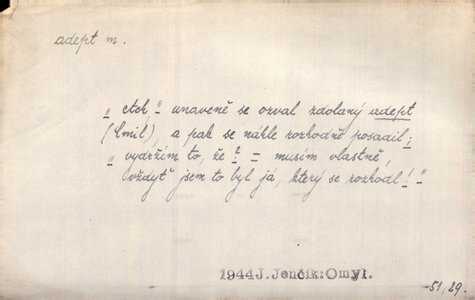 adept m.
„ Ach, " unaveně se ozval zdolaný adept
(Emil), a pak se náhle rozhodně posadil;
„ vydržím to, že ? = musím vlastně,
vždyť jsem to byl já, který se rozhodl! "
1944 J. Jenčík: Omyl.
51, 29.